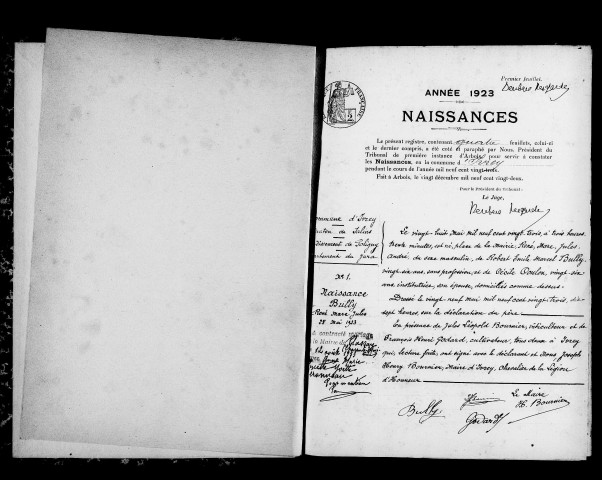 Premier feuillet.
ANNÉE 1923
NAISSANCES
Le présent registre, contenant quatre feuillets, celui-ci
et le dernier compris, a été coté et paraphé par Nous, Président du
Tribunal de première instance d'Arbois, pour servir à constater
les Naissances, en la commune d'Ivrey
pendant le cours de l'année mil neuf cent vingt-trois.
Fait à Arbois, le vingt décembre mil neuf cent vingt-deux.
Pour le Président du Tribunal :
Le Juge,
Commune d'Ivrey
Canton de Salins
de Poligny
du Jura
N° 1.
Naissance
Bully
René Marc Jules
28 Mai 1923
Le vingt huit Mai mil neuf cent vingt trois, à trois heures
trente minutes, est né, place de la Mairie, René, Marc, Jules
André, de sexe masculin, de Robert Emile Marcel Bully,
vingt six ans, sans profession, et de Cécile Coulon, vingt six
ans institutrice, son épouse, domiciliés comme dessus.
Dressé le vingt neuf mai mil neuf cent vingt trois, dix
sept heures, sur la déclaration du père.
En présence de Jules Léopold Bournier, viticulteur et de
François Henri Godard, cultivateur, tous deux à Ivrey
qui, lecture faite, ont signé avec le déclarant et Nous Joseph
Henry Bournier, Maire d'Ivrey, Chevalier de la Légion
d'Honneur
Le Maire
Bully
H. Bournier
Godard